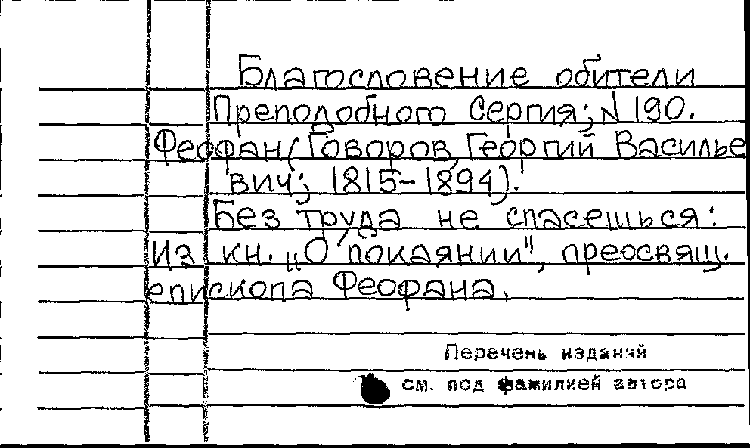 Благословение обители
Преподобного Сергия; N 190.
Феофан (Говоров, Георгий Василье
вич; 1815-1894).
Без труда не спасешься:
Из кн. „О покаянии", преосвящ.
епископа Феофана.
Перечень изданий
см. под фамилией автора